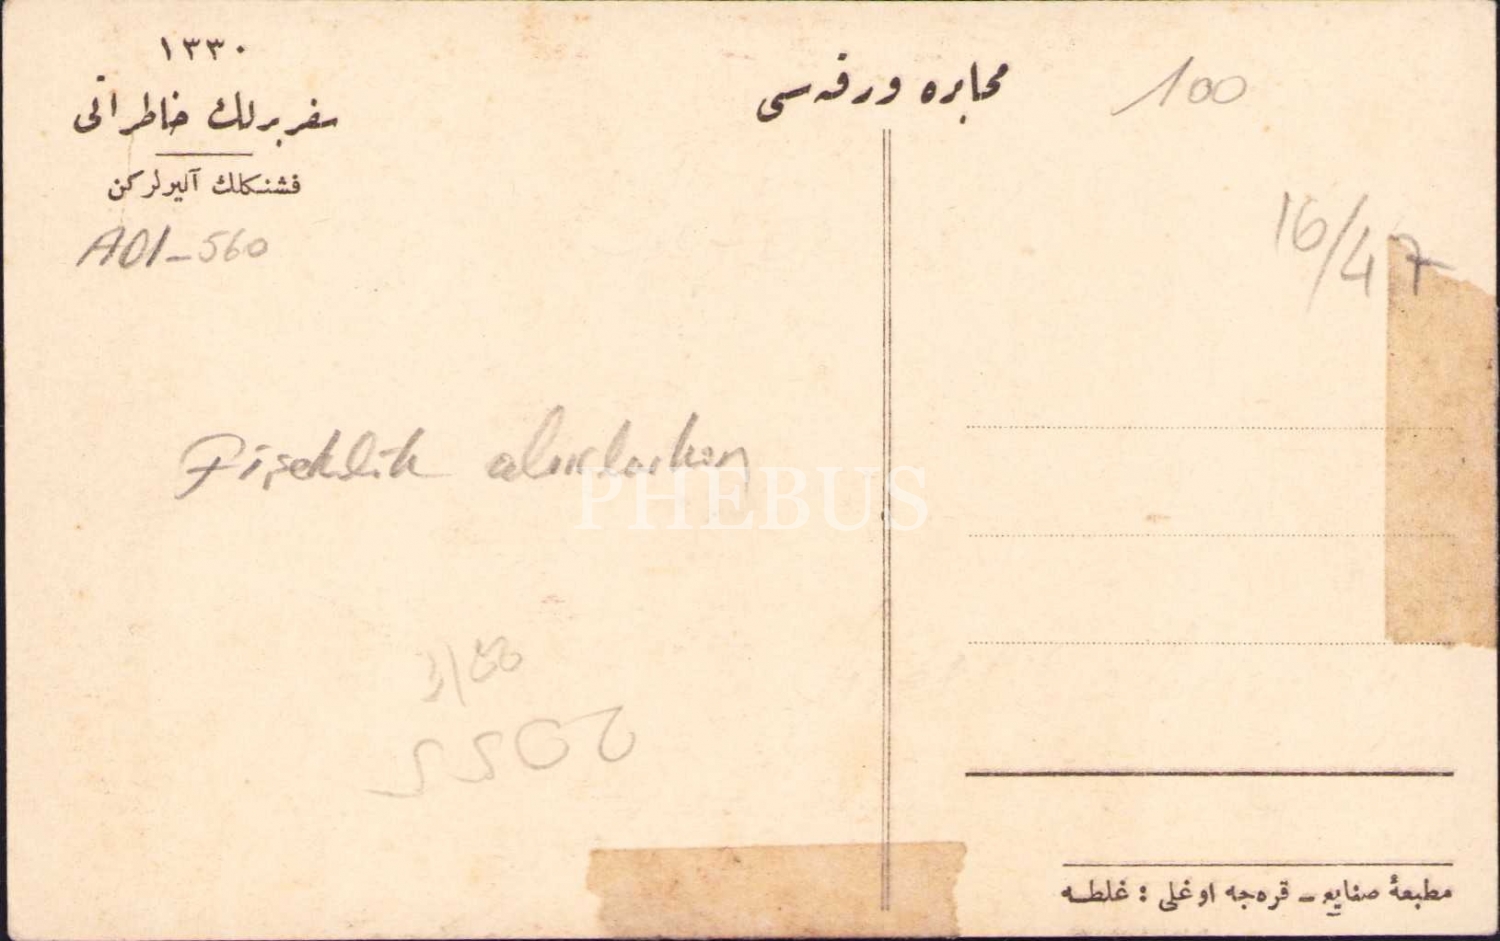 ١٣٣٠
سفربرلك خاطراتی
فشنكلك آلیرلركن
A01-560
مخابره ورقه‌سی
100
16/47
Fişeklik alırlarken
PHEBUS
مطبعهٔ صنایع - قره‌جه اوغلی : غلطه